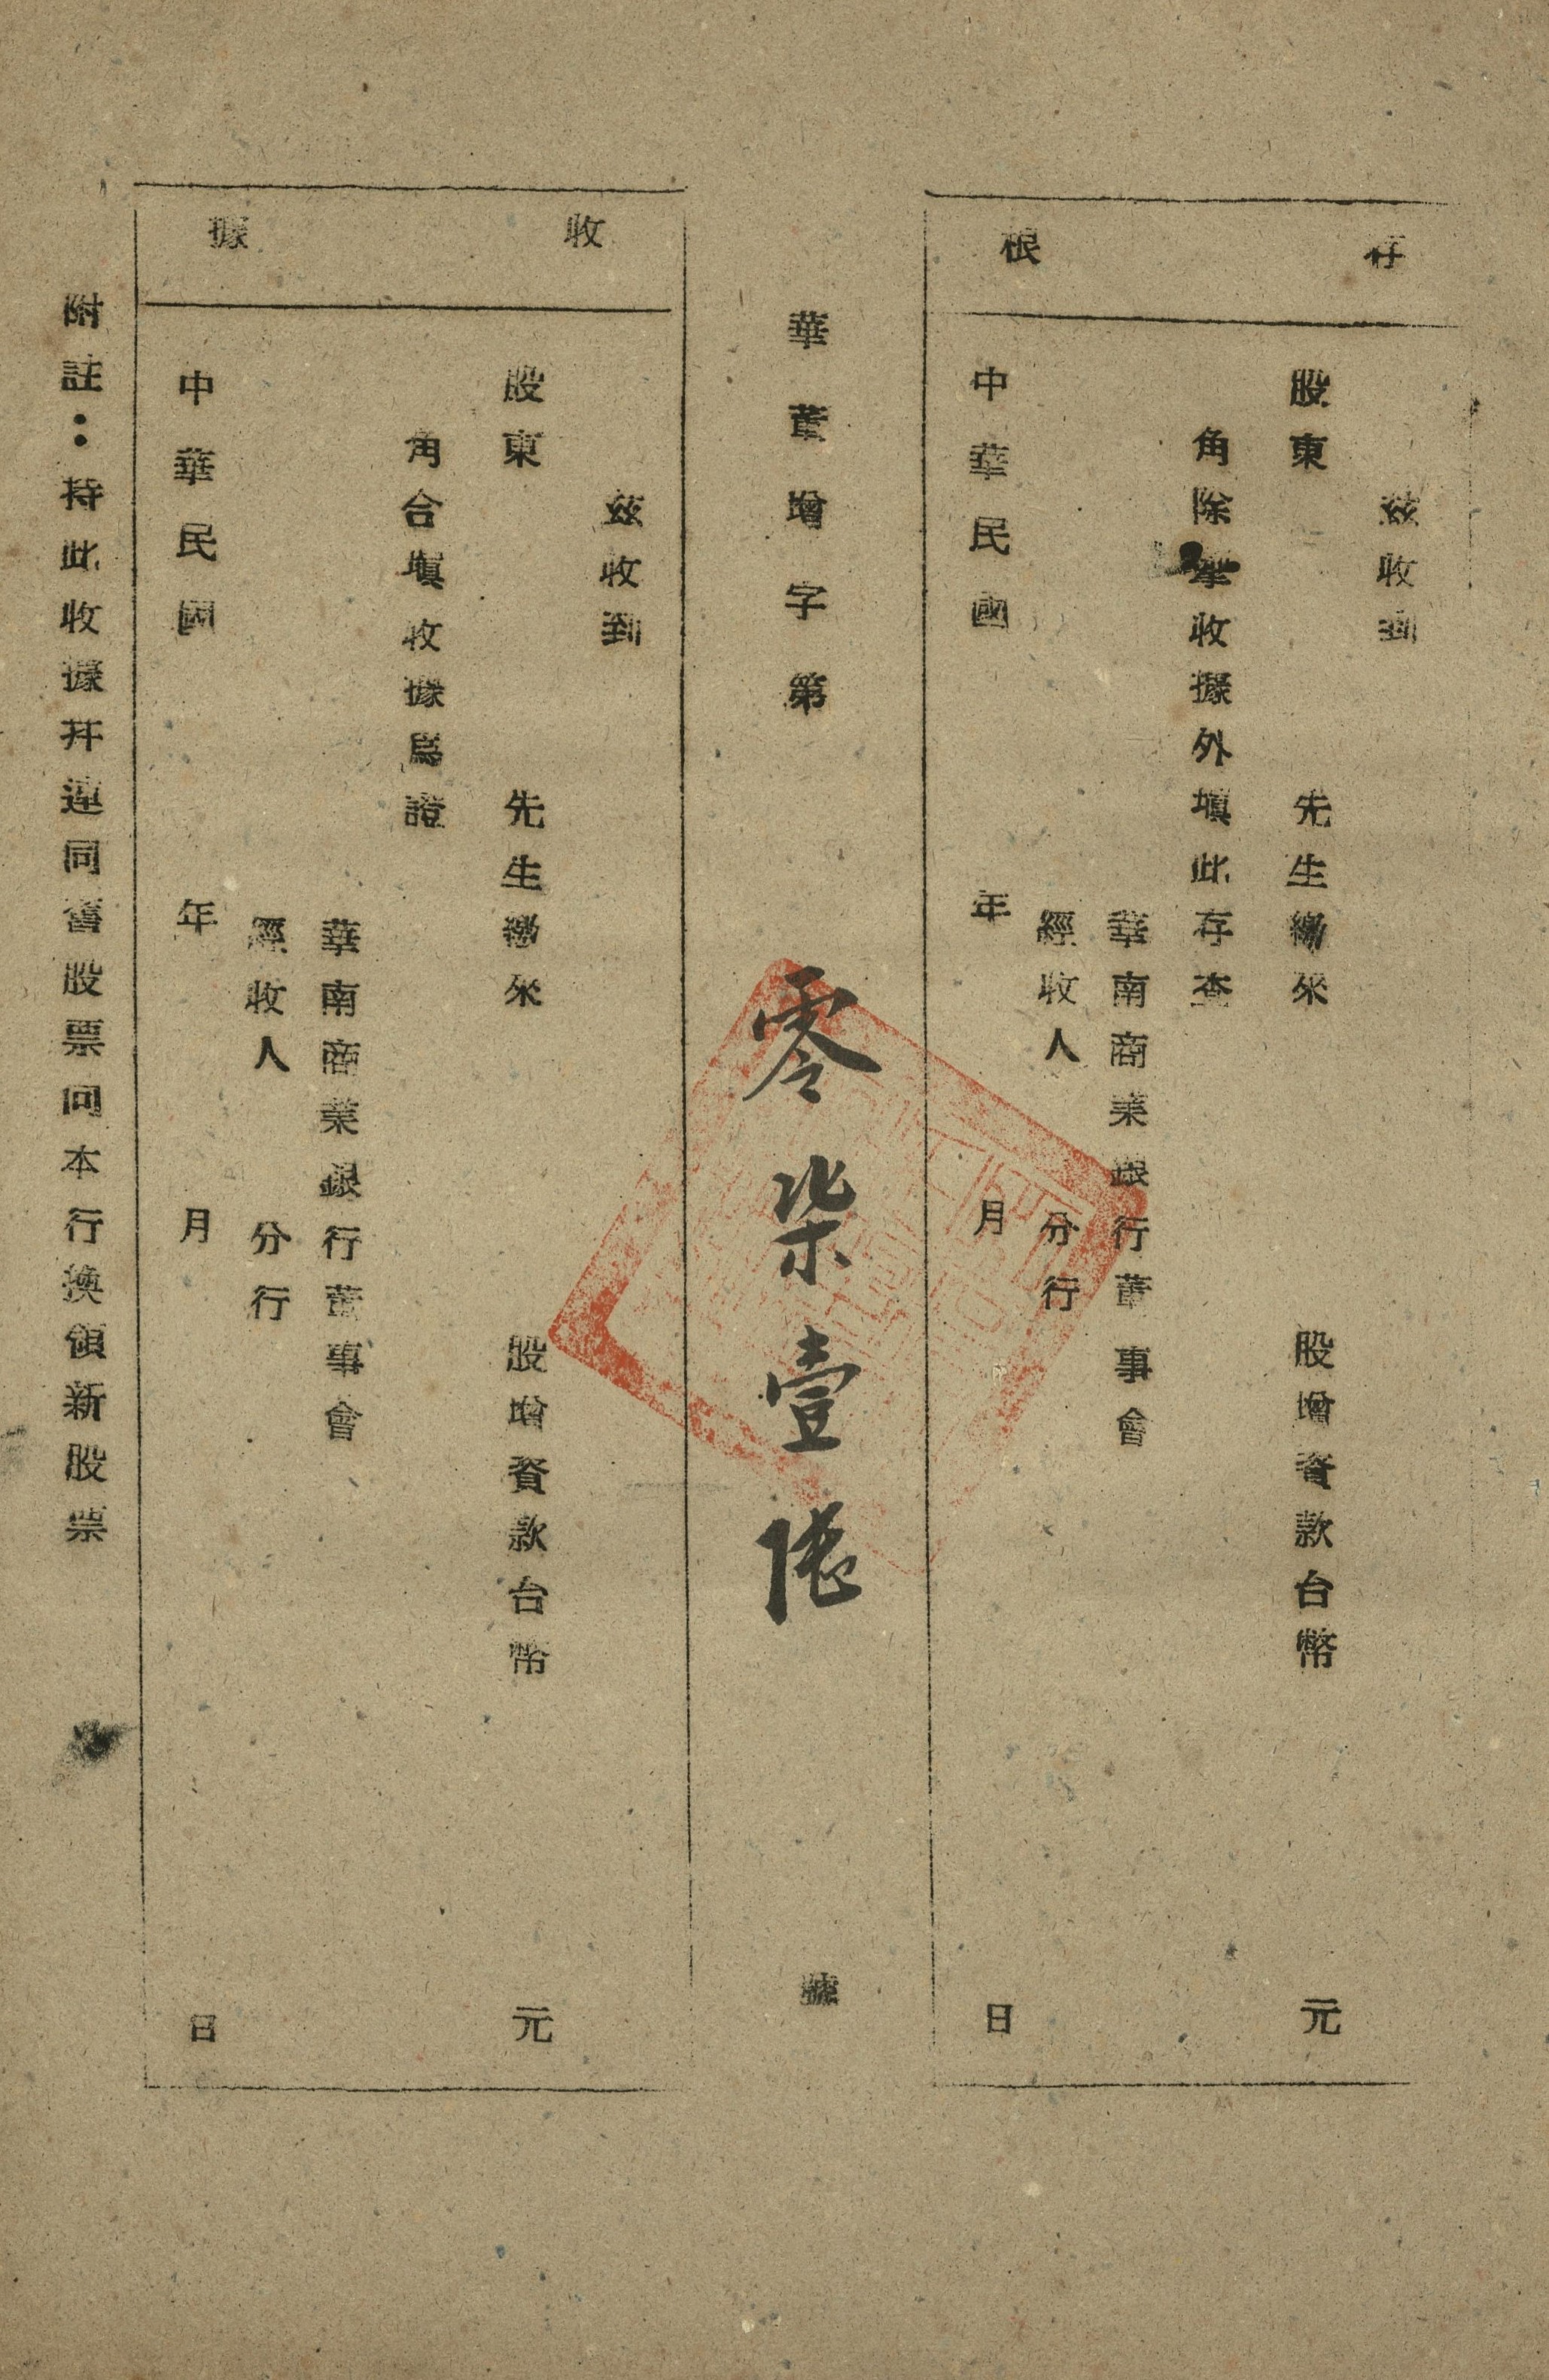 存根
茲收到
股東 先生繳來 股增資款台幣 元
角除掣收據外填此存查
華南商業銀行董事會
經收人 分行
中華民國 年 月 日
華董增字第 零柒壹陸 號
收據
茲收到
股東 先生繳來 股增資款台幣 元
角合塡收據爲證
華南商業銀行董事會
經收人 分行
中華民國 年 月 日
附註:持此收據幷連同舊股票向本行換領新股票